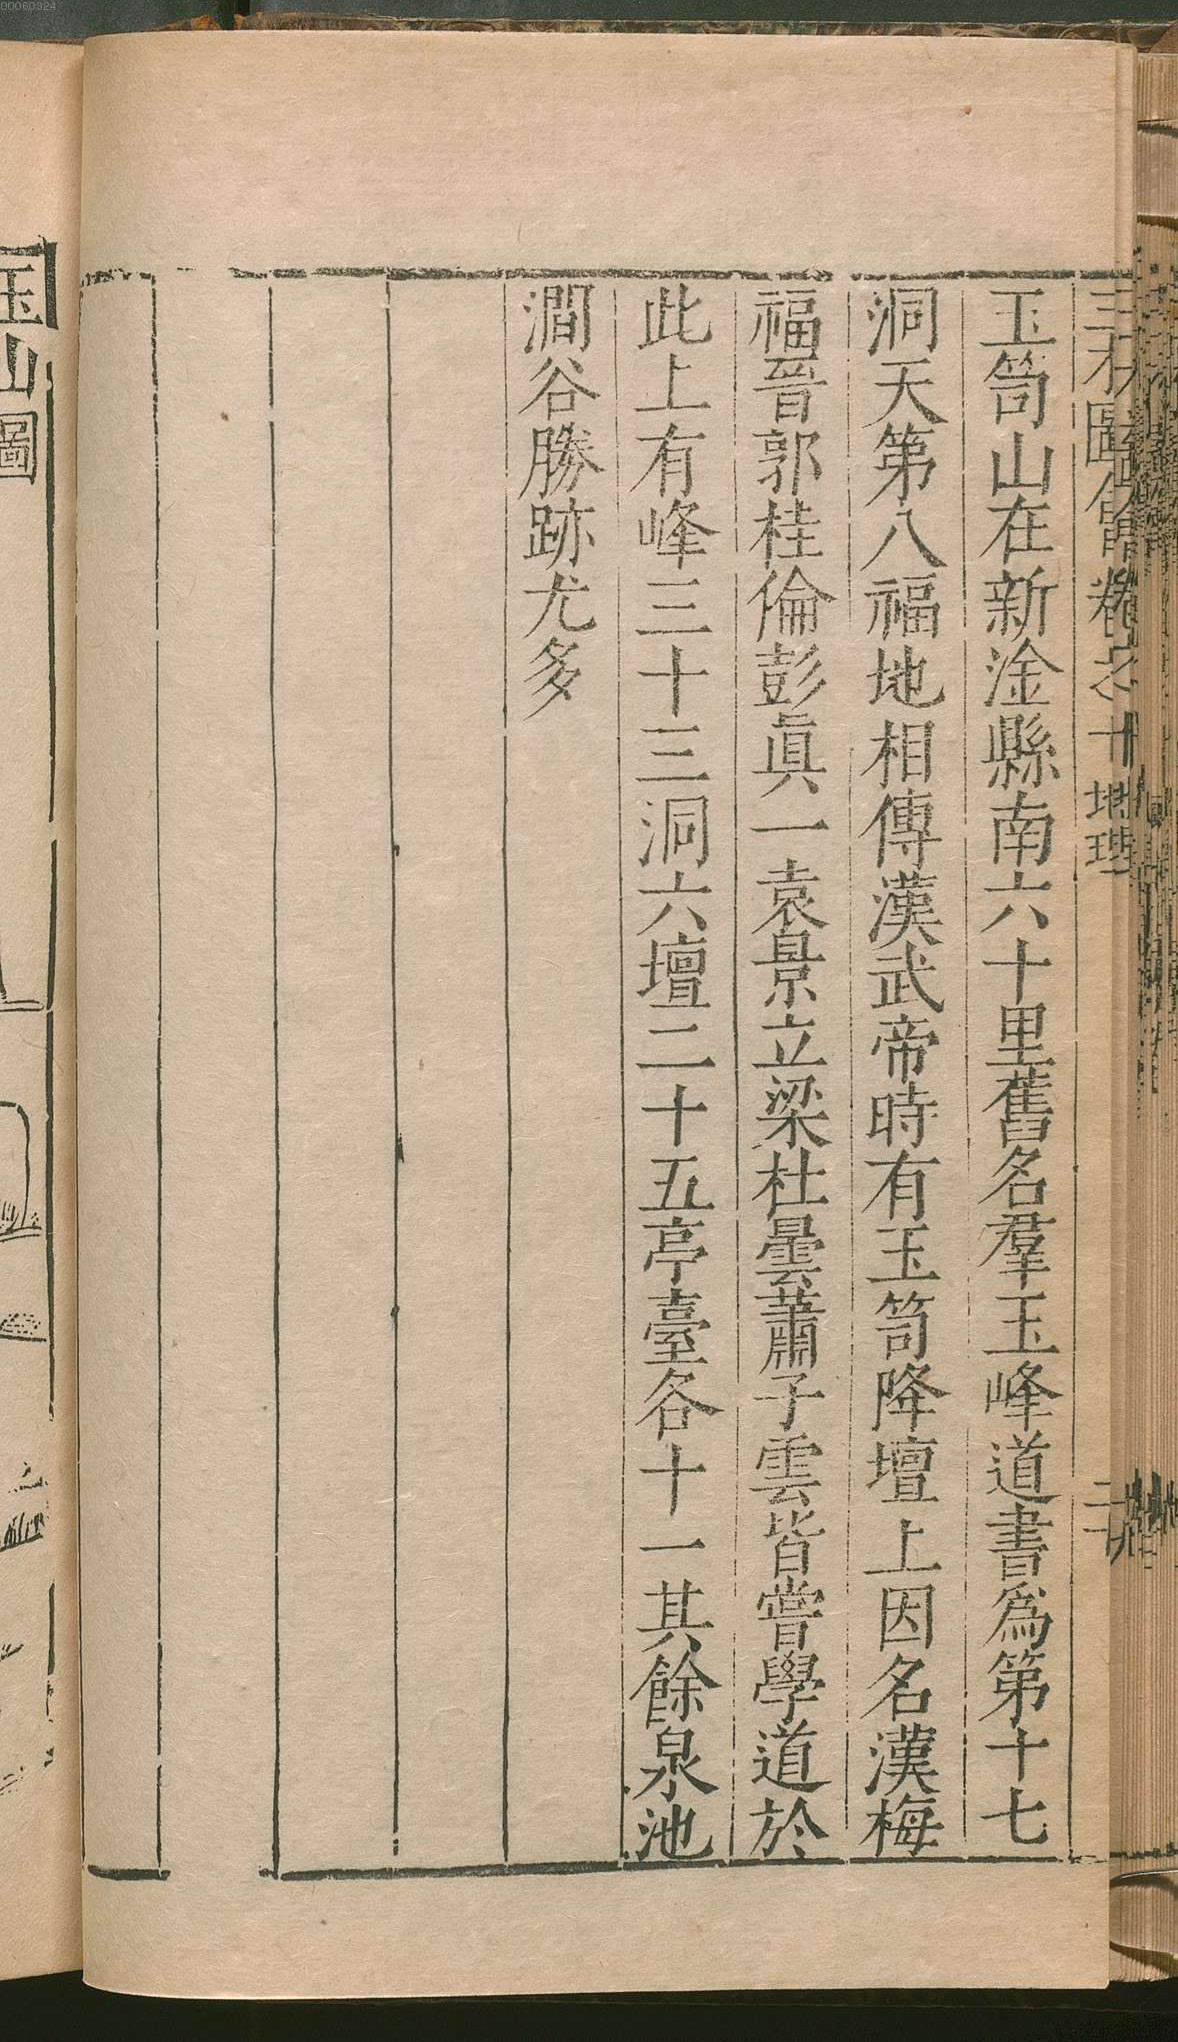 三才圖會卷之十地理
玉笥山在新淦縣南六十里舊名羣玉峰道書爲第十七
洞天第八福地相傳漢武帝時有玉笥降壇上因名漢梅
福晉郭桂倫彭眞一袁景立梁杜曇蕭子雲皆嘗學道於
此上有峰三十三洞六壇二十五亭臺各十一其餘泉池
澗谷勝跡尤多
玉山圖
00060324